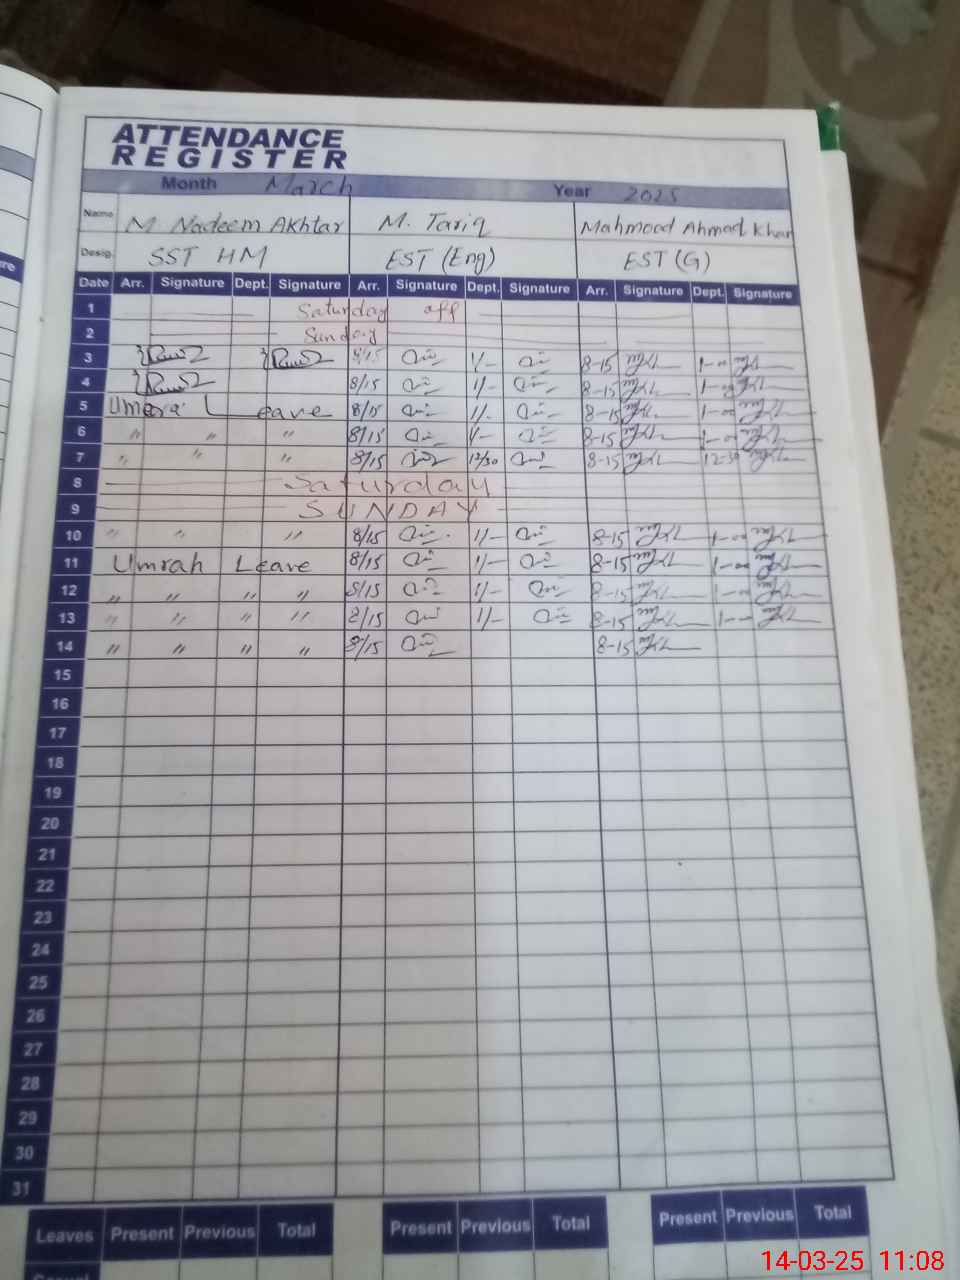 ATTENDANCE
REGISTER
Month March Year 2025
Name M. Nadeem Akhtar M. Tariq Mahmood Ahmad Khan
Desig. SST HM EST (Eng) EST (G)
Date Arr. Signature Dept. Signature Arr. Signature Dept. Signature Arr. Signature Dept. Signature
1 Saturday off
2 Sunday
3 8/15 1/- 8-15 1-00
4 8/15 1/- 8-15 1-00
5 Umera Leave 8/15 1/- 8-15 1-00
6 " " " 8/15 1/- 8-15 1-00
7 " " " 8/15 12/30 8-15 12-30
8 Saturday
9 SUNDAY
10 " " " 8/15 1/- 8-15 1-00
11 Umrah Leave 8/15 1/- 8-15 1-00
12 " " " " 8/15 1/- 8-15 1-00
13 " " " " 8/15 1/- 8-15 1-00
14 " " " " 8/15 8-15
15
16
17
18
19
20
21
22
23
24
25
26
27
28
29
30
31
Leaves Present Previous Total Present Previous Total Present Previous Total
14-03-25 11:08